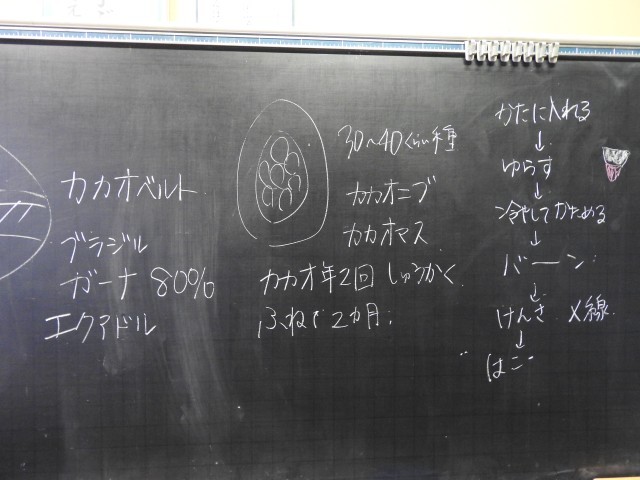 カカオベルト
ブラジル
ガーナ 80%
エクアドル
30~40くらい種
カカオニブ
カカオマス
カカオ年2回 しゅうかく
ふねで2カ月
かたに入れる
↓
ゆらす
↓
冷やしてかためる
↓
バーン
↓
けんさ X線
↓
はこ